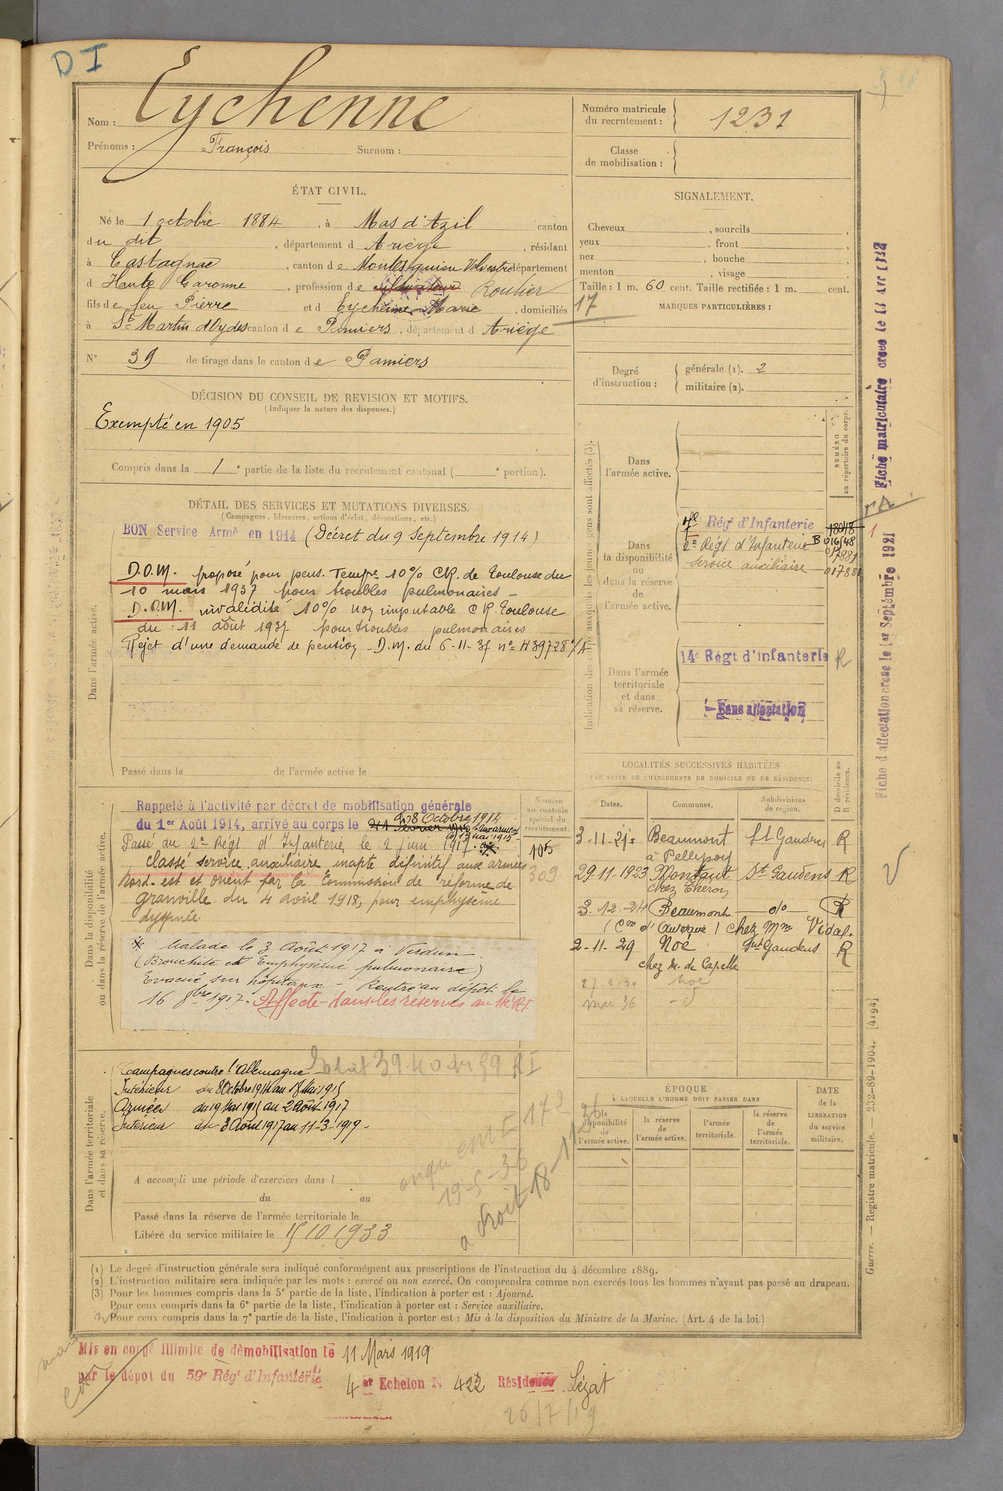 DI
Nom : Eychenne
Prénoms : François Surnom :
Numéro matricule
du recrutement : 1231
Classe
de mobilisation :
ÉTAT CIVIL.
Né le 1 octobre 1884, à Mas d'Azil canton
du dit, département d Ariège, résidant
à Castagnac, canton de Montesquieu Volvestre département
d Haute Garonne, profession de cultivateur Roulier
fils de feu Pierre et d'Eychenne Marie, domiciliés
à St Martin d'Oydes canton de Pamiers, département d Ariège
N° 39 de tirage dans le canton de Pamiers
SIGNALEMENT.
Cheveux , sourcils ,
yeux , front ,
nez , bouche ,
menton , visage
Taille : 1 m. 60 cent. Taille rectifiée : 1 m. cent.
17
MARQUES PARTICULIÈRES :
Degré
d'instruction :
générale (1). 2
militaire (2).
DÉCISION DU CONSEIL DE REVISION ET MOTIFS.
(Indiquer la nature des dispenses.)
Exempté en 1905
Compris dans la 1e partie de la liste du recrutement cantonal ( e portion).
DÉTAIL DES SERVICES ET MUTATIONS DIVERSES.
(Campagnes, blessures, actions d'éclat, décorations, etc.)
BON Service Armé en 1914 (Décret du 9 Septembre 1914)
D.O.M. proposé pour pens. Tempre 10% CR. de Toulouse du
10 mars 1937 pour troubles pulmonaires -
D.O.M. invalidité 10% non imputable CR Toulouse
du 11 août 1937 pour troubles pulmonaires
Rejet d'une demande de pension - D.M. du 6-11-37 n°
Dans l'armée active.
Passé dans la de l'armée active le
Indication des corps auxquels les jeunes gens sont affectés (3).
NUMÉRO
au répertoire du corps.
Dans
l'armée active.
Dans
la disponibilité
ou
dans la réserve
de
l'armée active.
Rég d'Infanterie
2e Régt d'Infanterie
service auxiliaire
Dans l'armée
territoriale
et dans
sa réserve.
14e Régt d'Infanterie R
Sans affectation
Fiche matriculaire créée le
Fiche d'affectation créée le 1er Septembre 1921
LOCALITÉS SUCCESSIVES HABITÉES
PAR SUITE DE CHANGEMENTS DE DOMICILE OU DE RÉSIDENCE.
Dates. Communes. Subdivisions
de région. D domicile ou
R résidence.
3-11-21 Beaumont St Gaudens R
29-11-1923 Montaut St Gaudens R
chez
3-12-24 Beaumont d° R
chez Mme Vidal.
2-11-29 Noé St Gaudens R
chez M. de Capelle
Noé
mai 36
Dans la disponibilité
ou dans la réserve de l'armée active.
Numéro
au contrôle
spécial du
recrutement.
105
309
Rappelé à l'activité par décret de mobilisation générale
du 1er Août 1914, arrivé au corps le 8 Octobre 1914
Passé au 2e Régt d'Infanterie le 2 Juin 1917.
classé service auxiliaire inapte définitif aux armées
Nord-est et orient par la Commission de réforme de
Granville du 4 avril 1918, pour emphysème
dyspnée
* Malade le 3 Août 1917 à Verdun
(Bronchite et Emphysème pulmonaire)
Evacué sur hôpitaux - Rentré au dépôt le
16 8bre 1917. Affecté dans les réserves au
Dans l'armée territoriale
et dans sa réserve.
Campagnes contre l'Allemagne
Intérieur du 8 Octobre 1914 au 18 Mai 1915
Armées du 19 Mai 1915 au 2 Août 1917
Intérieur du 3 Août 1917 au 11-3-1919 -
A accompli une période d'exercices dans l
du au
Passé dans la réserve de l'armée territoriale le
Libéré du service militaire le 15 10 1933
19-5-36
ÉPOQUE
À LAQUELLE L'HOMME DOIT PASSER DANS
la
disponibilité
de
l'armée active.
la réserve
de
l'armée active.
l'armée
territoriale.
la réserve
de
l'armée
territoriale.
DATE
de la
LIBÉRATION
du service
militaire.
(1) Le degré d'instruction générale sera indiqué conformément aux prescriptions de l'instruction du 4 décembre 1889.
(2) L'instruction militaire sera indiquée par les mots : exercé ou non exercé. On comprendra comme non exercés tous les hommes n'ayant pas passé au drapeau.
(3) Pour les hommes compris dans la 5e partie de la liste, l'indication à porter est : Ajourné.
Pour ceux compris dans la 6e partie de la liste, l'indication à porter est : Service auxiliaire.
Pour ceux compris dans la 7e partie de la liste, l'indication à porter est : Mis à la disposition du Ministre de la Marine. (Art. 4 de la loi.)
Guerre. — Registre matricule. — 232-89-1904. [4194]
Mis en congé illimité de démobilisation le 11 Mars 1919
par le dépôt du 59e Régt d'Infanterie
4e Echelon N 422 Résidence Lézat
26/7/19